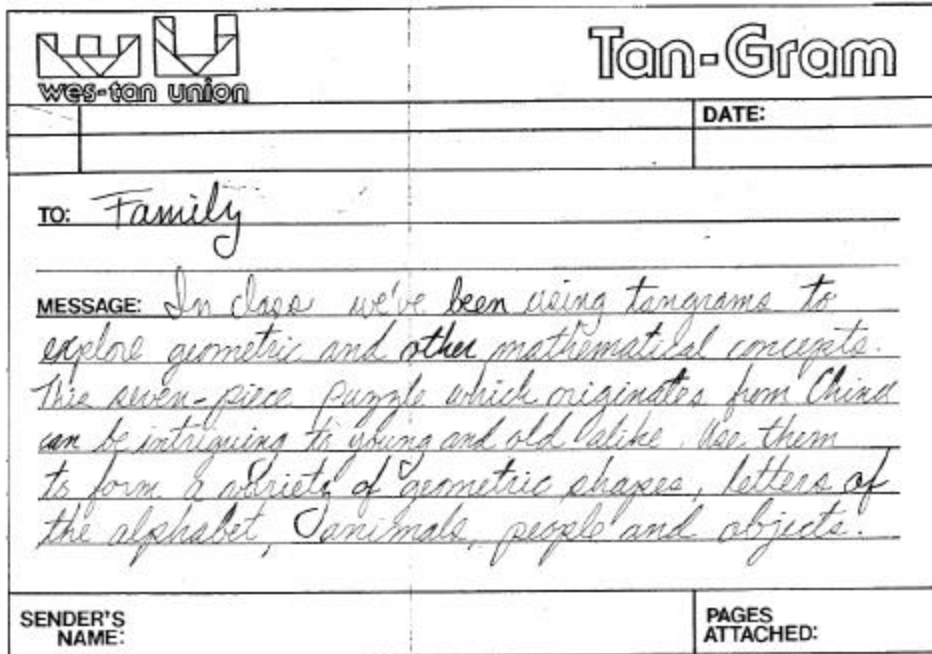 wes-tan union
Tan-Gram
DATE:
TO: Family
MESSAGE: In class we've been using tangrams to
explore geometric and other mathematical concepts.
This seven-piece puzzle which originates from China
can be intriguing to young and old alike. Use them
to form a variety of geometric shapes, letters of
the alphabet, animals, people and objects.
SENDER'S
NAME:
PAGES
ATTACHED: